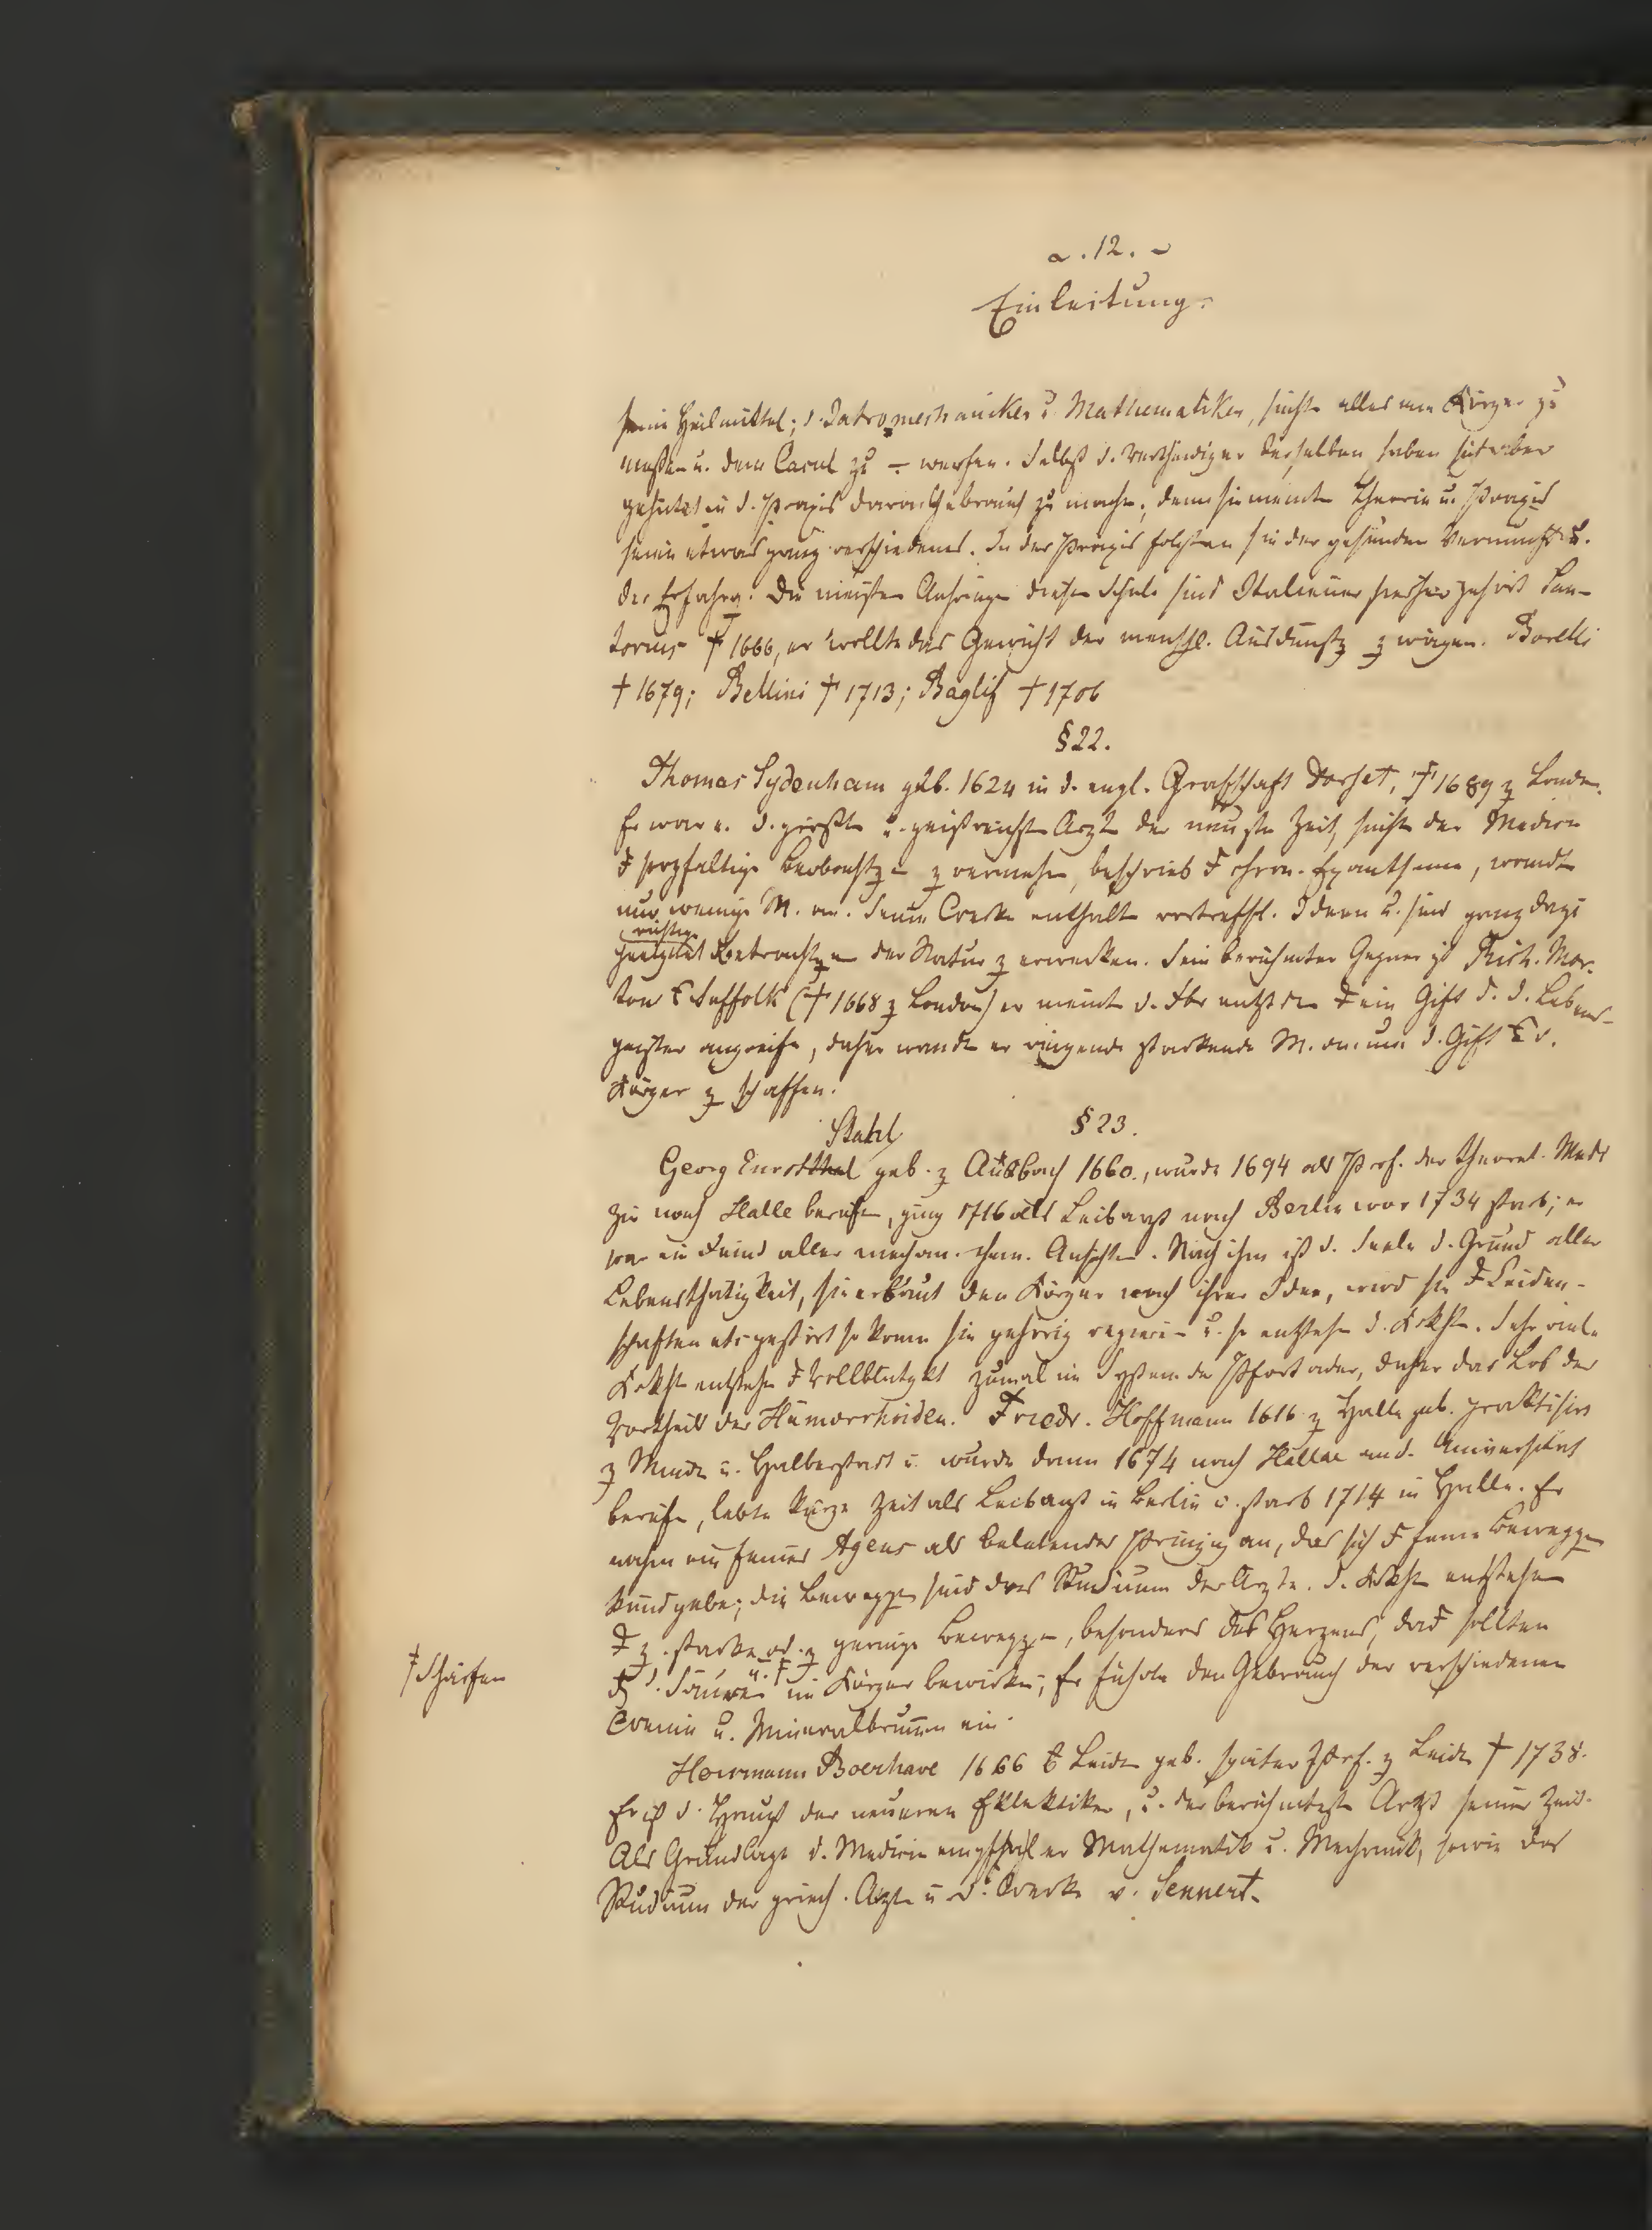 . 12.
Einleitung.
seine Heilmittel; d. Iatromechaniker u. Mathematiker, suchte alles am Körper zu
messen u. dem Calcul zu werfen. Selbst d. Vertheidiger derselben haben sich aber
gehütet in d. Praxis davon Gebrauch zu machen; denn sie meinten Theorie u. Praxis
seien etwas ganz verschiedenes. In der Praxis folgten sie der gesunden Vernunft u.
der Erfahrg. Die meisten Anhänger dieser Schule sind Italiener hierher gehört San-
torius † 1666, er wollte das Gewicht der menschl. Ausdünstg z wägen. Borelli
† 1679; Bellini † 1713; Bagliv † 1706
§ 22.
Thomas Sydenham geb. 1624 in d. engl. Grafschaft Dorset, † 1689 z London.
Er war e. d. größten u. geistreichsten Ärzte der neusten Zeit, suchte der Medicin
sorgfältige Beobachtgen z vermehren, beschrieb chron. Exantheme, wandte
nur wenige M. an. Seine Werke enthalten vortreffl. Ideen u. sind ganz dazu
richtige
geeignet Betrachtgen der Natur z erwecken. Sein berühmter Gegner ist Rich. Mor-
ton Suffolk († 1668 z London) er meint d. Fbr entstehen ein Gift d. d. Lebens-
geister angreife, daher wandte er reizende stärkende M. an. um d. Gift d.
Körper z schaffen.
§ 23.
Stahl
Georg Ernst geb. z Ansbach 1660., wurde 1694 als Prof. der theoret. Medi
zin nach Halle berufen, ging 1716 als Leibarzt nach Berlin wo er 1734 starb; er
war ein Feind aller mechan. chem. Ansichten. Nach ihm ist d. Seele d. Grund aller
Lebensthätigkeit, sie erbaut den Körper nach ihrer Idee, wird sie Leiden-
schaften etc gestört so kann sie gehörig regieren u. so entstehen d. Krkhten. Sehr viele
Krkhten entstehen Vollblütgkt zumal im System der Pfortader, daher das Lob der
Vortheile der Hämorrhoiden. Friedr. Hoffmann 1616 z Halle geb. praktisirt
z Minden u. Halberstadt u. wurde dann 1674 nach Hallae an d. Universität
berufen, lebte kurze Zeit als Leibarzt in Berlin u. starb 1714 in Halle. Er
nahm ein feines Agens als belebendes Prinzip an, das sich feine Beweggen
kundgebe; die Beweggen sind das Studium der Ärzte. d. Krkhten entstehen
z. starke od. z geringe Beweggen, besonders des Herzens, das sollten
‡ Schärfen
d. Säuren u. ‡ im Körper bewirken; Er führte den Gebrauch der verschiedenen
Weine u. Mineralbrunnen ein.
Herrmann Boerhave 1666 Leiden geb. später Prof. z Leiden † 1738.
Er ist d. Haupt der neueren Eklektiker, u. der berühmteste Arzt seiner Zeit.
Als Grundlage d. Medicin empfahl er Mathematik u. Mechanik, sowie das
Studium der griech. Ärzte u. d. Werke v. Sennert.